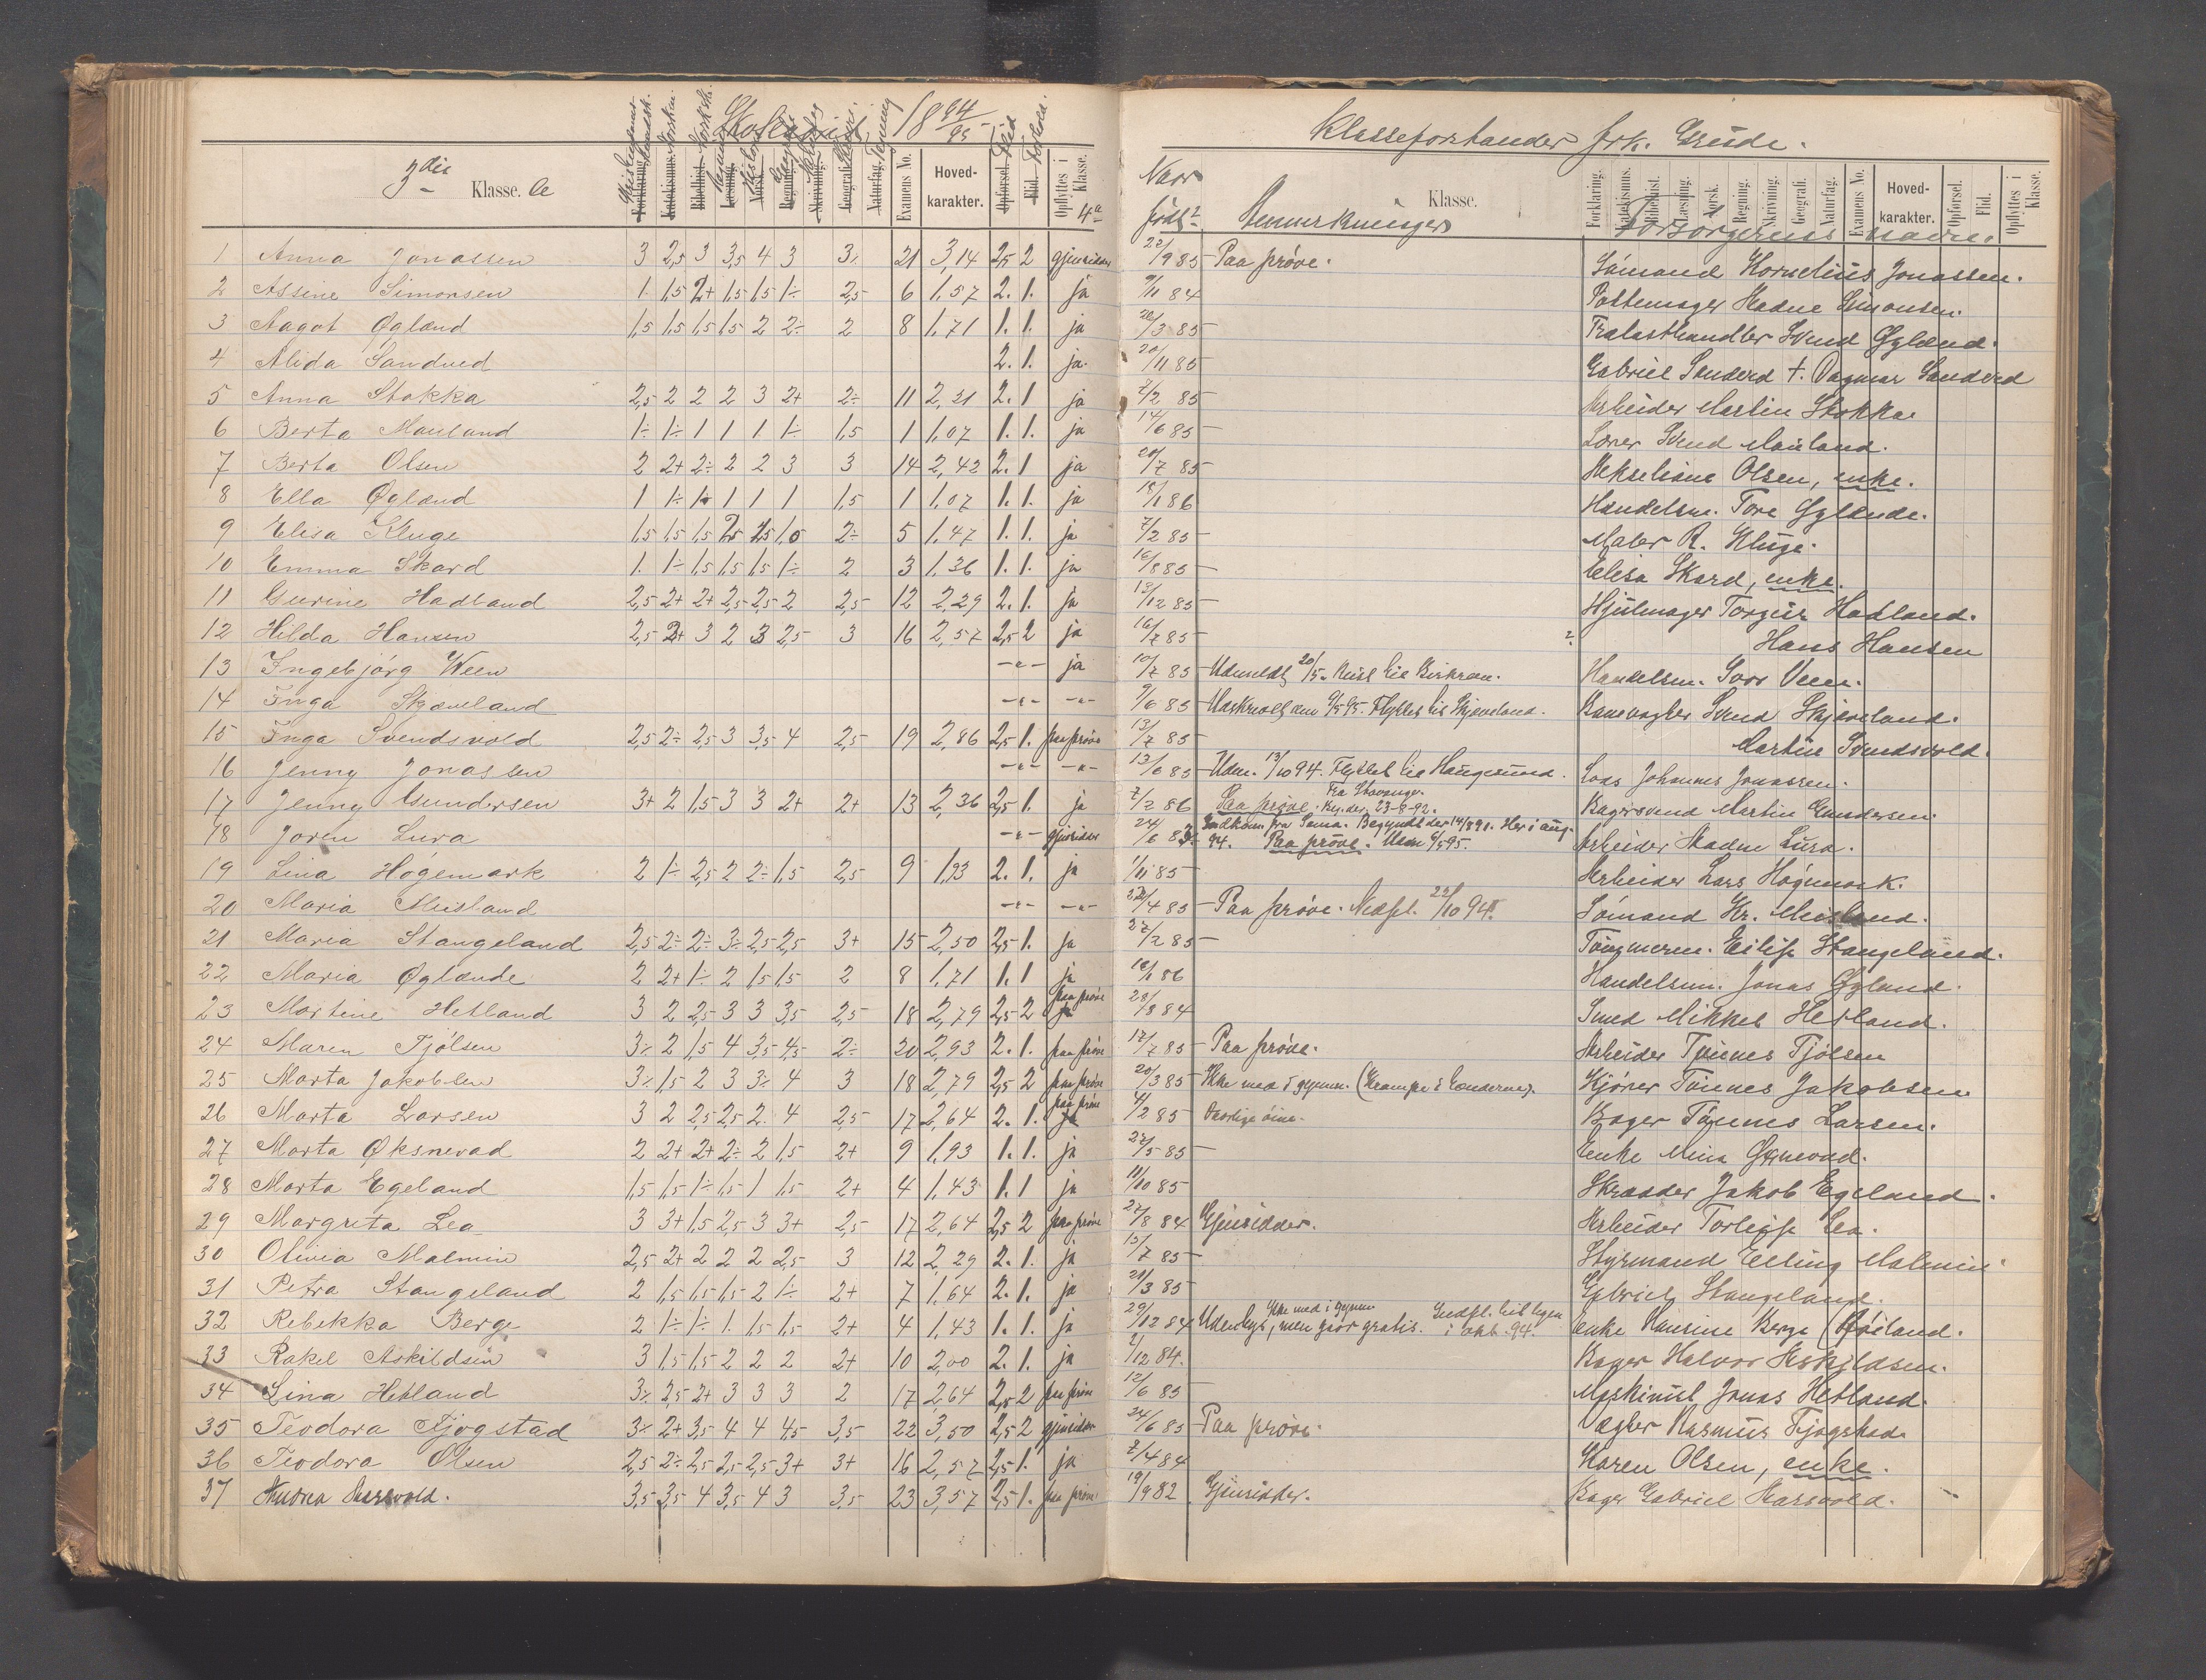 Skoleaaret 18 94/95
3die Klasse. b
Examens No. Hoved-karakter. Opflyttes i Klasse. 4a
1 Anna Jonassen 3 2,5 3 3,5 4 3 3÷ 21 3,14 2,5 2 gjensidder
2 Assine Simonsen 1. 1,5 2+ 1,5 1,5 1÷ 2,5 6 1,57 2. 1. ja
3 Aagot Øgland 1,5 1,5 1,5 1,5 2 2÷ 2 8 1,71 1. 1. ja
4 Alida Sandved 2. 1. ja.
5 Anna Stokka 2,5 2 2 2 3 2+ 2÷ 11 2,21 2. 1 ja
6 Berta Mauland 1÷ 1÷ 1 1 1 1÷ 1,5 1 1,07 1. 1. ja
7 Berta Olsen 2 2+ 2÷ 2 2 3 3 14 2,42 2. 1 ja
8 Ella Øgland 1 1÷ 1÷ 1 1 1 1,5 1 1,07 1. 1. ja
9 Elisa Kluge 1,5 1,5 1,5 2,5 1,5 1,0 2÷ 5 1,47 1. 1. ja
10 Emma Skard 1. 1÷ 1,5 1,5 1,5 1÷ 2 3 1,36 1. 1. ja
11 Gurine Hadland 2,5 2+ 2+ 2,5 2,5 2 2,5 12 2,29 2. 1. ja
12 Hilda Hansen 2,5 2+ 3 2 3 2,5 3 16 2,57 2,5 2 ja
13 Ingebjörg Ween -"- ja
14 Inga Skjæveland -"- -"-
15 Inga Svendsvold 2,5 2÷ 2,5 3 3,5 4 2,5 19 2,86 2,5 1. paa prøve
16 Jenny Jonassen -"- -"-
17 Jenny Gundersen 3+ 2 1,5 3 3 2+ 2+ 13 2,36 2,5 1. ja
18 Joren Lura -"- gjensidder
19 Lina Högemark 2 1÷ 2,5 2 2÷ 1,5 2,5 9 1,93 2. 1. ja
20 Maria Meisland -"- -"-
21 Maria Stangeland 2,5 2÷ 2÷ 3÷ 2,5 2,5 3+ 15 2,50 2,5 1. ja
22 Maria Øglænde 2 2+ 1÷ 2 1,5 1,5 2 8 1,71 1. 1 ja
23 Martine Hetland 3 2 2,5 3 3 3,5 2,5 18 2,79 2,5 2 paa prøve
24 Maren Tjölsen 3÷ 2 1,5 4 3,5 4,5 2÷ 20 2,93 2. 1. paa prøve
25 Marta Jakobsen 3÷ 1,5 2 3 3÷ 4 3 18 2,79 2,5 2 paa prøve
26 Marta Larsen 3 2 2,5 2,5 2. 4 2,5 17 2,64 2. 1. paa prøve
27 Marta Øksnevad 2 2+ 2+ 2÷ 2 1,5 2+ 9 1,93 1. 1. ja
28 Marta Egeland 1,5 1,5 1÷ 1,5 1 1,5 2+ 4 1,43 1. 1 ja
29 Margreta Lea 3 3+ 1,5 2,5 3 3+ 2,5 17 2,64 2,5 2 paa prøve
30 Olivia Malmin 2,5 2+ 2 2 2 2,5 3 12 2,29 2. 1. ja
31 Petra Stangeland 2 1,5 1,5 1,5 2 1÷ 2+ 7 1,64 2. 1. ja
32 Rebekka Berge 2 1÷ 1÷ 1. 1,5 1,5 2+ 4 1,43 1. 1. ja
33 Rakel Askildsen 3 1,5 1,5 2 2 2 2+ 10 2,00 2. 1. ja
34 Sina Hetland 3÷ 2,5 2+ 3 3 3 2 17 2,64 2,5 2 paa prøve
35 Teodora Fjogstad 3÷ 2+ 3,5 4 4 4,5 3,5 22 3,50 2,5 2 gjensidder
36 Teodora Olsen 2,5 2÷ 2,5 2,5 2,5 3+ 3+ 16 2,57 2,5 1. ja
37 Andrea 3,5 3,5 4 3,5 4 3 3,5 23 3,57 2,5 1. paa prøve
Klasseforstander frk. Grude.
Naar født? Anmerkninger Klasse. Forsørgerens navne.
Forklaring. Katekismus. Bibelhist. Læsning. Norsk. Regning. Skrivning. Geografi. Naturfag. Examens No. Hoved-karakter. Opførsel. Flid. Opflyttes i Klasse.
27/9 85 Paa prøve. Sömand Kornelius Jonassen.
9/11 84 Pottemager Hadne Simonsen.
22/3 85 Trælasthandler Svend Øgland.
20/11 85 Gabriel Sandved †. Dagmar Sandved
7/2 85 Arbeider Martin Stokka
14/6 85 Lærer Svend Mauland.
20/7 85 Olsen, enke.
18/1 86 Handelsm. Tore Øglænde.
7/2 85 Maler R. Kluge.
16/8 85 Elisa Skard, enke.
13/12 85 Hjulmager Torgeir Hadland.
16/7 85 ? Hans Hansen
10/7 85 Udmeldt 20/5. Reist til Birkrem. Handelsm. Ween.
9/6 85 Udskrevet den 9/5 95. Flyttet til Skjæveland. Banevogter Svend Skjæveland.
13/7 85 Martin Svendsvold.
13/6 85 Udm. 13/10 94. Flyttet til Haugesund. Lods Johannes Jonassen.
7/2 86 Paa prøve. Fra Stavanger. Beg. der 23-8-92. Bagersvend Martin Gundersen.
24/6 83 Indkom. fra Soma. Begyndt der 14/8 91. Her i aug. 94. Paa prøve. Udm 6/5 95. Arbeider Hadne Lura.
1/11 85 Arbeider Lars Högemark.
22/4 85 Paa prøve. Nedfl. 22/10 94. Sömand Kr. Meisland.
27/2 85 Tømmerm. Eilif Stangeland.
18/1 86 Handelsm. Jonas Øgland.
28/8 84 Smed Mikkel Hetland.
17/7 85 Paa prøve. Arbeider Tönnes Tjölsen
20/3 85 Ikke med i gymn. (Krampe i Lænderne). Kjører Tönnes Jakobsen
4/2 85 Daarlige öine. Bager Tönnes Larsen.
27/5 85 Enke Mina Øxnevad.
11/10 85 Skrædder Jakob Egeland.
27/8 84 Gjensidder. Arbeider Torleif Lea.
13/7 85 Styrmand Elling Malmin.
21/3 85 Gabriel Stangeland.
29/12 84 Udenbys, men gaar gratis. Ikke med i gymn. Indfl. i okt. 94. Enke Hansine Berge (Höiland.
2/12 84. Bager Halvor Askildsen.
12/6 85 Maskinist Jonas Hetland.
24/6 85 Paa prøve. Vogter Rasmus Fjogstad
7/4 84 Karen Olsen, enke.
19/9 82 Gjensidder. Bager Gabriel